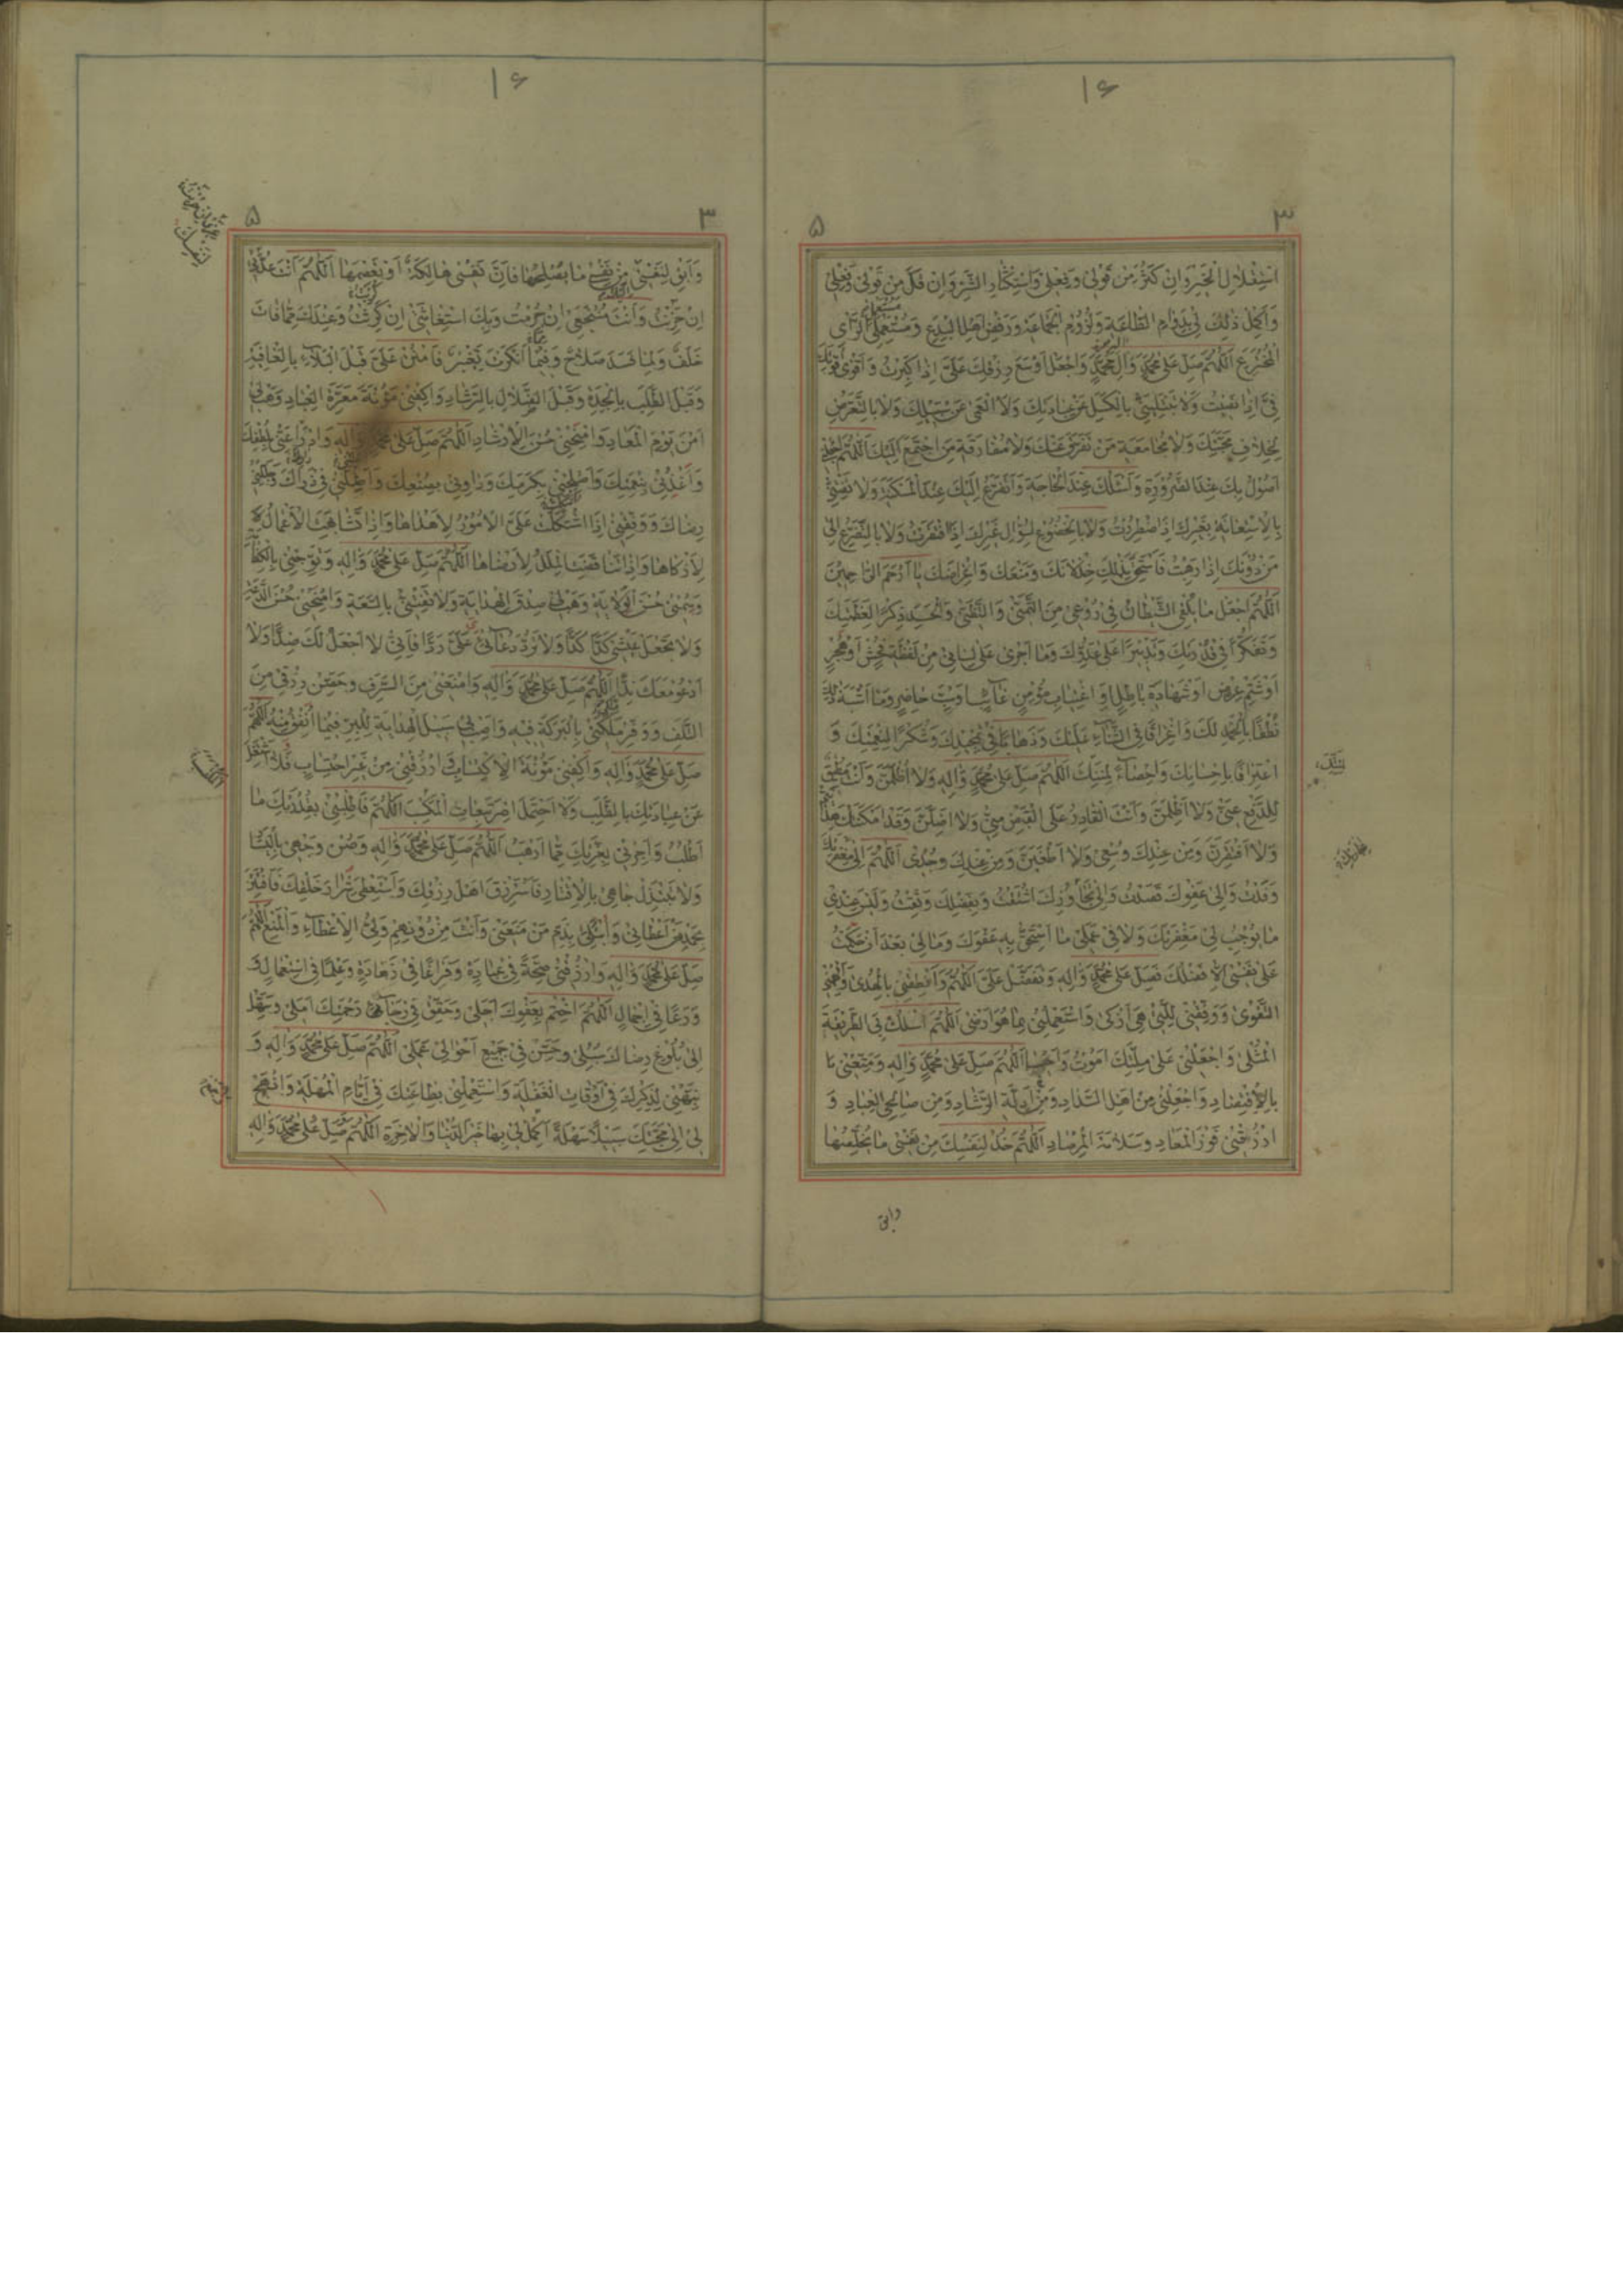 ١٤
٣ ٥
اسْتِقْلَالِ الْخَيْرِ وَاِنْ كَثُرَ مِنْ قَوْلِى وَفِعْلِى وَاسْتِكْثَارِ الشَّرِّ وَاِنْ قَلَّ مِنْ قَوْلِى وَفِعْلِى
وَاَكْمِلْ ذٰلِكَ لِى بِدَوَامِ الطَّاعَةِ وَلُزُومِ الْجَمَاعَةِ وَرَفْضِ اَهْلِ الْبِدَعِ وَمُسْتَعْمِلِى الرَّاْىِ
الْمُخْتَرَعِ اَللّٰهُمَّ صَلِّ عَلٰى مُحَمَّدٍ وَاٰلِ مُحَمَّدٍ وَاجْعَلْ اَوْسَعَ رِزْقِكَ عَلَىَّ اِذَا كَبِرْتُ وَاَقْوٰى قُوَّتِكَ
فِىَّ اِذَا نَصِبْتُ وَلَا تَبْتَلِيَنِّى بِالْكَسَلِ عَنْ عِبَادَتِكَ وَلَا الْعَمٰى عَنْ سَبِيلِكَ وَلَا بِالتَّعَرُّضِ
لِخِلَافِ مَحَبَّتِكَ وَلَا مُجَامَعَةِ مَنْ تَفَرَّقَ عَنْكَ وَلَا مُفَارَقَةِ مَنِ اجْتَمَعَ اِلَيْكَ اَللّٰهُمَّ اجْعَلْنِى
اَصُولُ بِكَ عِنْدَ الضَّرُورَةِ وَاَسْئَلُكَ عِنْدَ الْحَاجَةِ وَاَتَضَرَّعُ اِلَيْكَ عِنْدَ الْمَسْكَنَةِ وَلَا تَفْتِنِّى
بِالْاِسْتِعَانَةِ بِغَيْرِكَ اِذَا اضْطُرِرْتُ وَلَا بِالْخُضُوعِ لِسُؤَالِ غَيْرِكَ اِذَا افْتَقَرْتُ وَلَا بِالتَّضَرُّعِ اِلٰى
مَنْ دُونَكَ اِذَا رَهِبْتُ فَاَسْتَحِقَّ بِذٰلِكَ خِذْلَانَكَ وَمَنْعَكَ وَاِعْرَاضَكَ يَا اَرْحَمَ الرَّاحِمِينَ
اَللّٰهُمَّ اجْعَلْ مَا يُلْقِى الشَّيْطَانُ فِى رُوعِى مِنَ التَّمَنِّى وَالتَّظَنِّى وَالْحَسَدِ ذِكْرًا لِعَظَمَتِكَ
وَتَفَكُّرًا فِى قُدْرَتِكَ وَتَدْبِيرًا عَلٰى عَدُوِّكَ وَمَا اَجْرٰى عَلٰى لِسَانِى مِنْ لَفْظَةِ فُحْشٍ اَوْ هُجْرٍ
اَوْ شَتْمِ عِرْضٍ اَوْ شَهَادَةِ بَاطِلٍ اَوِ اغْتِيَابِ مُؤْمِنٍ غَائِبٍ اَوْ سَبِّ حَاضِرٍ وَمَا اَشْبَهَ ذٰلِكَ
نُطْقًا بِالْحَمْدِ لَكَ وَاِغْرَاقًا فِى الثَّنَاءِ عَلَيْكَ وَذَهَابًا فِى تَمْجِيدِكَ وَشُكْرًا لِنِعْمَتِكَ وَ
اعْتِرَافًا بِاِحْسَانِكَ وَاِحْصَاءً لِمِنَنِكَ اَللّٰهُمَّ صَلِّ عَلٰى مُحَمَّدٍ وَاٰلِهِ وَلَا اُظْلَمَنَّ وَاَنْتَ مُطِيقٌ
لِلدَّفْعِ عَنِّى وَلَا اَظْلِمَنَّ وَاَنْتَ الْقَادِرُ عَلَى الْقَبْضِ مِنِّى وَلَا اَضِلَّنَّ وَقَدْ اَمْكَنَتْكَ هِدَايَتِى
وَلَا اَفْتَقِرَنَّ وَمِنْ عِنْدِكَ وُسْعِى وَلَا اَطْغَيَنَّ وَمِنْ عِنْدِكَ وُجْدِى اَللّٰهُمَّ اِلٰى مَغْفِرَتِكَ
وَفَدْتُ وَاِلٰى عَفْوِكَ قَصَدْتُ وَاِلٰى تَجَاوُزِكَ اشْتَقْتُ وَبِفَضْلِكَ وَثِقْتُ وَلَيْسَ عِنْدِى
مَا يُوجِبُ لِى مَغْفِرَتَكَ وَلَا فِى عَمَلِى مَا اَسْتَحِقُّ بِهِ عَفْوَكَ وَمَا لِى بَعْدَ اَنْ حَكَمْتُ
عَلٰى نَفْسِى اِلَّا فَضْلُكَ فَصَلِّ عَلٰى مُحَمَّدٍ وَاٰلِهِ وَتَفَضَّلْ عَلَىَّ اَللّٰهُمَّ وَاَنْطِقْنِى بِالْهُدٰى وَاَلْهِمْنِى
التَّقْوٰى وَوَفِّقْنِى لِلَّتِى هِىَ اَزْكٰى وَاسْتَعْمِلْنِى بِمَا هُوَ اَرْضٰى اَللّٰهُمَّ اسْلُكْ بِىَ الطَّرِيقَةَ
الْمُثْلٰى وَاجْعَلْنِى عَلٰى مِلَّتِكَ اَمُوتُ وَاَحْيٰى اَللّٰهُمَّ صَلِّ عَلٰى مُحَمَّدٍ وَاٰلِهِ وَمَتِّعْنِى
بِالْاِقْتِصَادِ وَاجْعَلْنِى مِنْ اَهْلِ السَّدَادِ وَمِنْ اَدِلَّةِ الرَّشَادِ وَمِنْ صَالِحِى الْعِبَادِ وَ
ارْزُقْنِى فَوْزَ الْمَعَادِ وَسَلَامَةَ الْمِرْصَادِ اَللّٰهُمَّ خُذْ لِنَفْسِكَ مِنْ نَفْسِى مَا يُخَلِّصُهَا
وابق
١٤
٣ ٥
وَاَبْقِ لِنَفْسِى مِنْ نَفْسِى مَا يُصْلِحُهَا فَاِنَّ نَفْسِى هَالِكَةٌ اَوْ تَعْصِمَهَا اَللّٰهُمَّ اَنْتَ عُدَّتِى
اِنْ حَزِنْتُ وَاَنْتَ مُنْتَجَعِى اِنْ حُرِمْتُ وَبِكَ اسْتِغَاثَتِى اِنْ كَرِثْتُ وَعِنْدَكَ مِمَّا فَاتَ
خَلَفٌ وَلِمَا فَسَدَ صَلَاحٌ وَفِيمَا اَنْكَرْتَ تَغْيِيرٌ فَامْنُنْ عَلَىَّ قَبْلَ الْبَلَاءِ بِالْعَافِيَةِ
وَقَبْلَ الطَّلَبِ بِالْجِدَةِ وَقَبْلَ الضَّلَالِ بِالرَّشَادِ وَاكْفِنِى مَؤُنَةَ مَعَرَّةِ الْعِبَادِ وَهَبْ لِى
اَمْنَ يَوْمِ الْمَعَادِ وَامْنَحْنِى حُسْنَ الْاِرْشَادِ اَللّٰهُمَّ صَلِّ عَلٰى مُحَمَّدٍ وَاٰلِهِ وَادْرَأْ عَنِّى بِلُطْفِكَ
وَاغْذُنِى بِنِعْمَتِكَ وَاَصْلِحْنِى بِكَرَمِكَ وَدَاوِنِى بِصُنْعِكَ وَاَظِلَّنِى فِى ذَرَاكَ وَجَلِّلْنِى
رِضَاكَ وَوَفِّقْنِى اِذَا اشْتَكَلَتْ عَلَىَّ الْاُمُورُ لِاَهْدَاهَا وَاِذَا تَشَابَهَتِ الْاَعْمَالُ
لِاَزْكَاهَا وَاِذَا تَنَاقَضَتِ الْمِلَلُ لِاَرْضَاهَا اَللّٰهُمَّ صَلِّ عَلٰى مُحَمَّدٍ وَاٰلِهِ وَتَوِّجْنِى بِالْكِفَايَةِ
وَسُمْنِى حُسْنَ الْوِلَايَةِ وَهَبْ لِى صِدْقَ الْهِدَايَةِ وَلَا تَفْتِنِّى بِالسَّعَةِ وَامْنَحْنِى حُسْنَ الدَّعَةِ
وَلَا تَجْعَلْ عَيْشِى كَدًّا كَدًّا وَلَا تَرُدَّ دُعَائِى عَلَىَّ رَدًّا فَاِنِّى لَا اَجْعَلُ لَكَ ضِدًّا وَلَا
اَدْعُو مَعَكَ نِدًّا اَللّٰهُمَّ صَلِّ عَلٰى مُحَمَّدٍ وَاٰلِهِ وَامْنَعْنِى مِنَ السَّرَفِ وَحَصِّنْ رِزْقِى مِنَ
التَّلَفِ وَوَفِّرْ مَلَكَتِى بِالْبَرَكَةِ فِيهِ وَاَصِبْ بِى سَبِيلَ الْهِدَايَةِ لِلْبِرِّ فِيمَا اُنْفِقُ مِنْهُ اَللّٰهُمَّ
صَلِّ عَلٰى مُحَمَّدٍ وَاٰلِهِ وَاكْفِنِى مَؤُنَةَ الْاِكْتِسَابِ وَارْزُقْنِى مِنْ غَيْرِ احْتِسَابٍ فَلَا اَشْتَغِلَ
عَنْ عِبَادَتِكَ بِالطَّلَبِ وَلَا اَحْتَمِلَ اِصْرَ تَبِعَاتِ الْمَكْسَبِ اَللّٰهُمَّ فَاَطْلِبْنِى بِقُدْرَتِكَ مَا
اَطْلُبُ وَاَجِرْنِى بِعِزَّتِكَ مِمَّا اَرْهَبُ اَللّٰهُمَّ صَلِّ عَلٰى مُحَمَّدٍ وَاٰلِهِ وَصُنْ وَجْهِى بِالْيَسَارِ
وَلَا تَبْتَذِلْ جَاهِى بِالْاِقْتَارِ فَاَسْتَرْزِقَ اَهْلَ رِزْقِكَ وَاَسْتَعْطِىَ شِرَارَ خَلْقِكَ فَاَفْتَتِنَ
بِحَمْدِ مَنْ اَعْطَانِى وَاُبْتَلٰى بِذَمِّ مَنْ مَنَعَنِى وَاَنْتَ مِنْ دُونِهِمْ وَلِىُّ الْاِعْطَاءِ وَالْمَنْعِ اَللّٰهُمَّ
صَلِّ عَلٰى مُحَمَّدٍ وَاٰلِهِ وَارْزُقْنِى صِحَّةً فِى عِبَادَةٍ وَفَرَاغًا فِى زَهَادَةٍ وَعِلْمًا فِى اسْتِعْمَالٍ
وَوَرَعًا فِى اِجْمَالٍ اَللّٰهُمَّ اخْتِمْ بِعَفْوِكَ اَجَلِى وَحَقِّقْ فِى رَجَاءِ رَحْمَتِكَ اَمَلِى وَسَهِّلْ
اِلٰى بُلُوغِ رِضَاكَ سُبُلِى وَحَسِّنْ فِى جَمِيعِ اَحْوَالِى عَمَلِى اَللّٰهُمَّ صَلِّ عَلٰى مُحَمَّدٍ وَاٰلِهِ وَ
نَبِّهْنِى لِذِكْرِكَ فِى اَوْقَاتِ الْغَفْلَةِ وَاسْتَعْمِلْنِى بِطَاعَتِكَ فِى اَيَّامِ الْمُهْلَةِ وَانْهَجْ
لِى اِلٰى مَحَبَّتِكَ سَبِيلًا سَهْلَةً اَكْمِلْ لِى بِهَا خَيْرَ الدُّنْيَا وَالْاٰخِرَةِ اَللّٰهُمَّ صَلِّ عَلٰى مُحَمَّدٍ وَاٰلِهِ